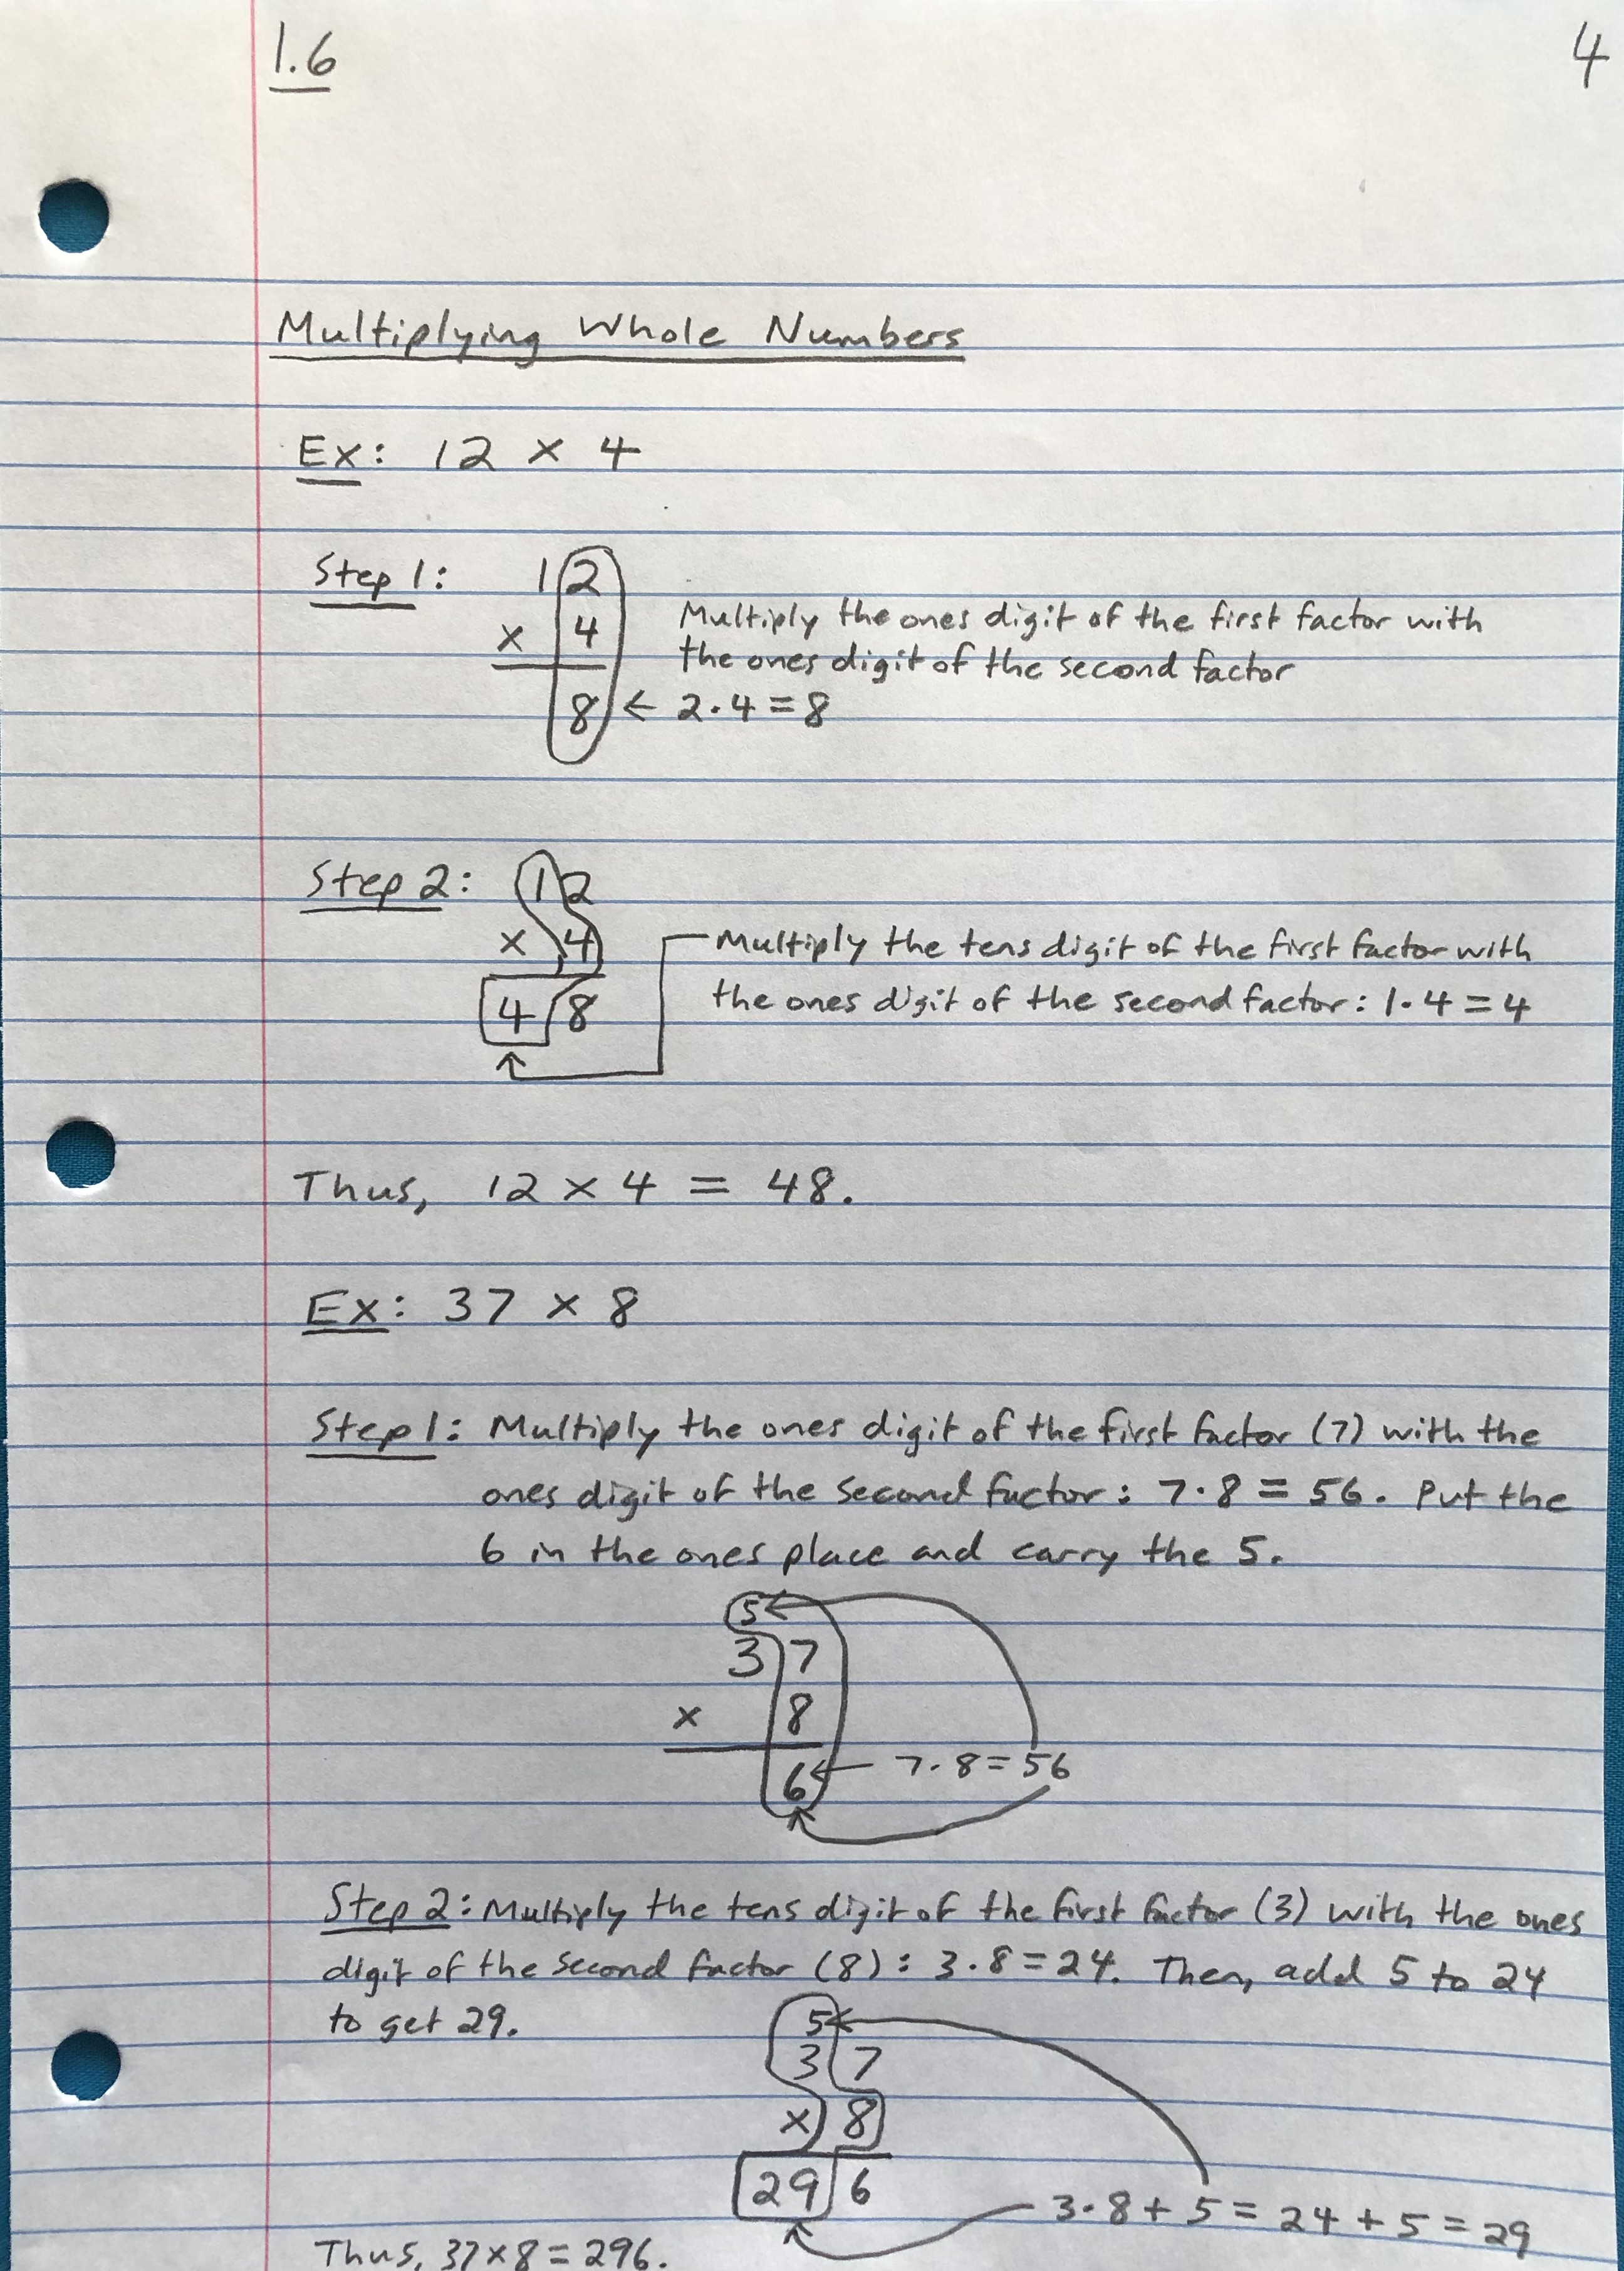 1.6
4
Multiplying Whole Numbers
Ex: 12 × 4
Step 1: 12
× 4
Multiply the ones digit of the first factor with
the ones digit of the second factor
8 ← 2·4=8
Step 2: 12
× 4
Multiply the tens digit of the first factor with
48
the ones digit of the second factor: 1·4=4
Thus, 12 × 4 = 48.
Ex: 37 × 8
Step 1: Multiply the ones digit of the first factor (7) with the
ones digit of the second factor: 7·8 = 56. Put the
6 in the ones place and carry the 5.
5
37
× 8
6 ← 7·8=56
Step 2: Multiply the tens digit of the first factor (3) with the ones
digit of the second factor (8): 3·8=24. Then, add 5 to 24
to get 29.
5
37
× 8
296
3·8+5=24+5=29
Thus, 37×8=296.